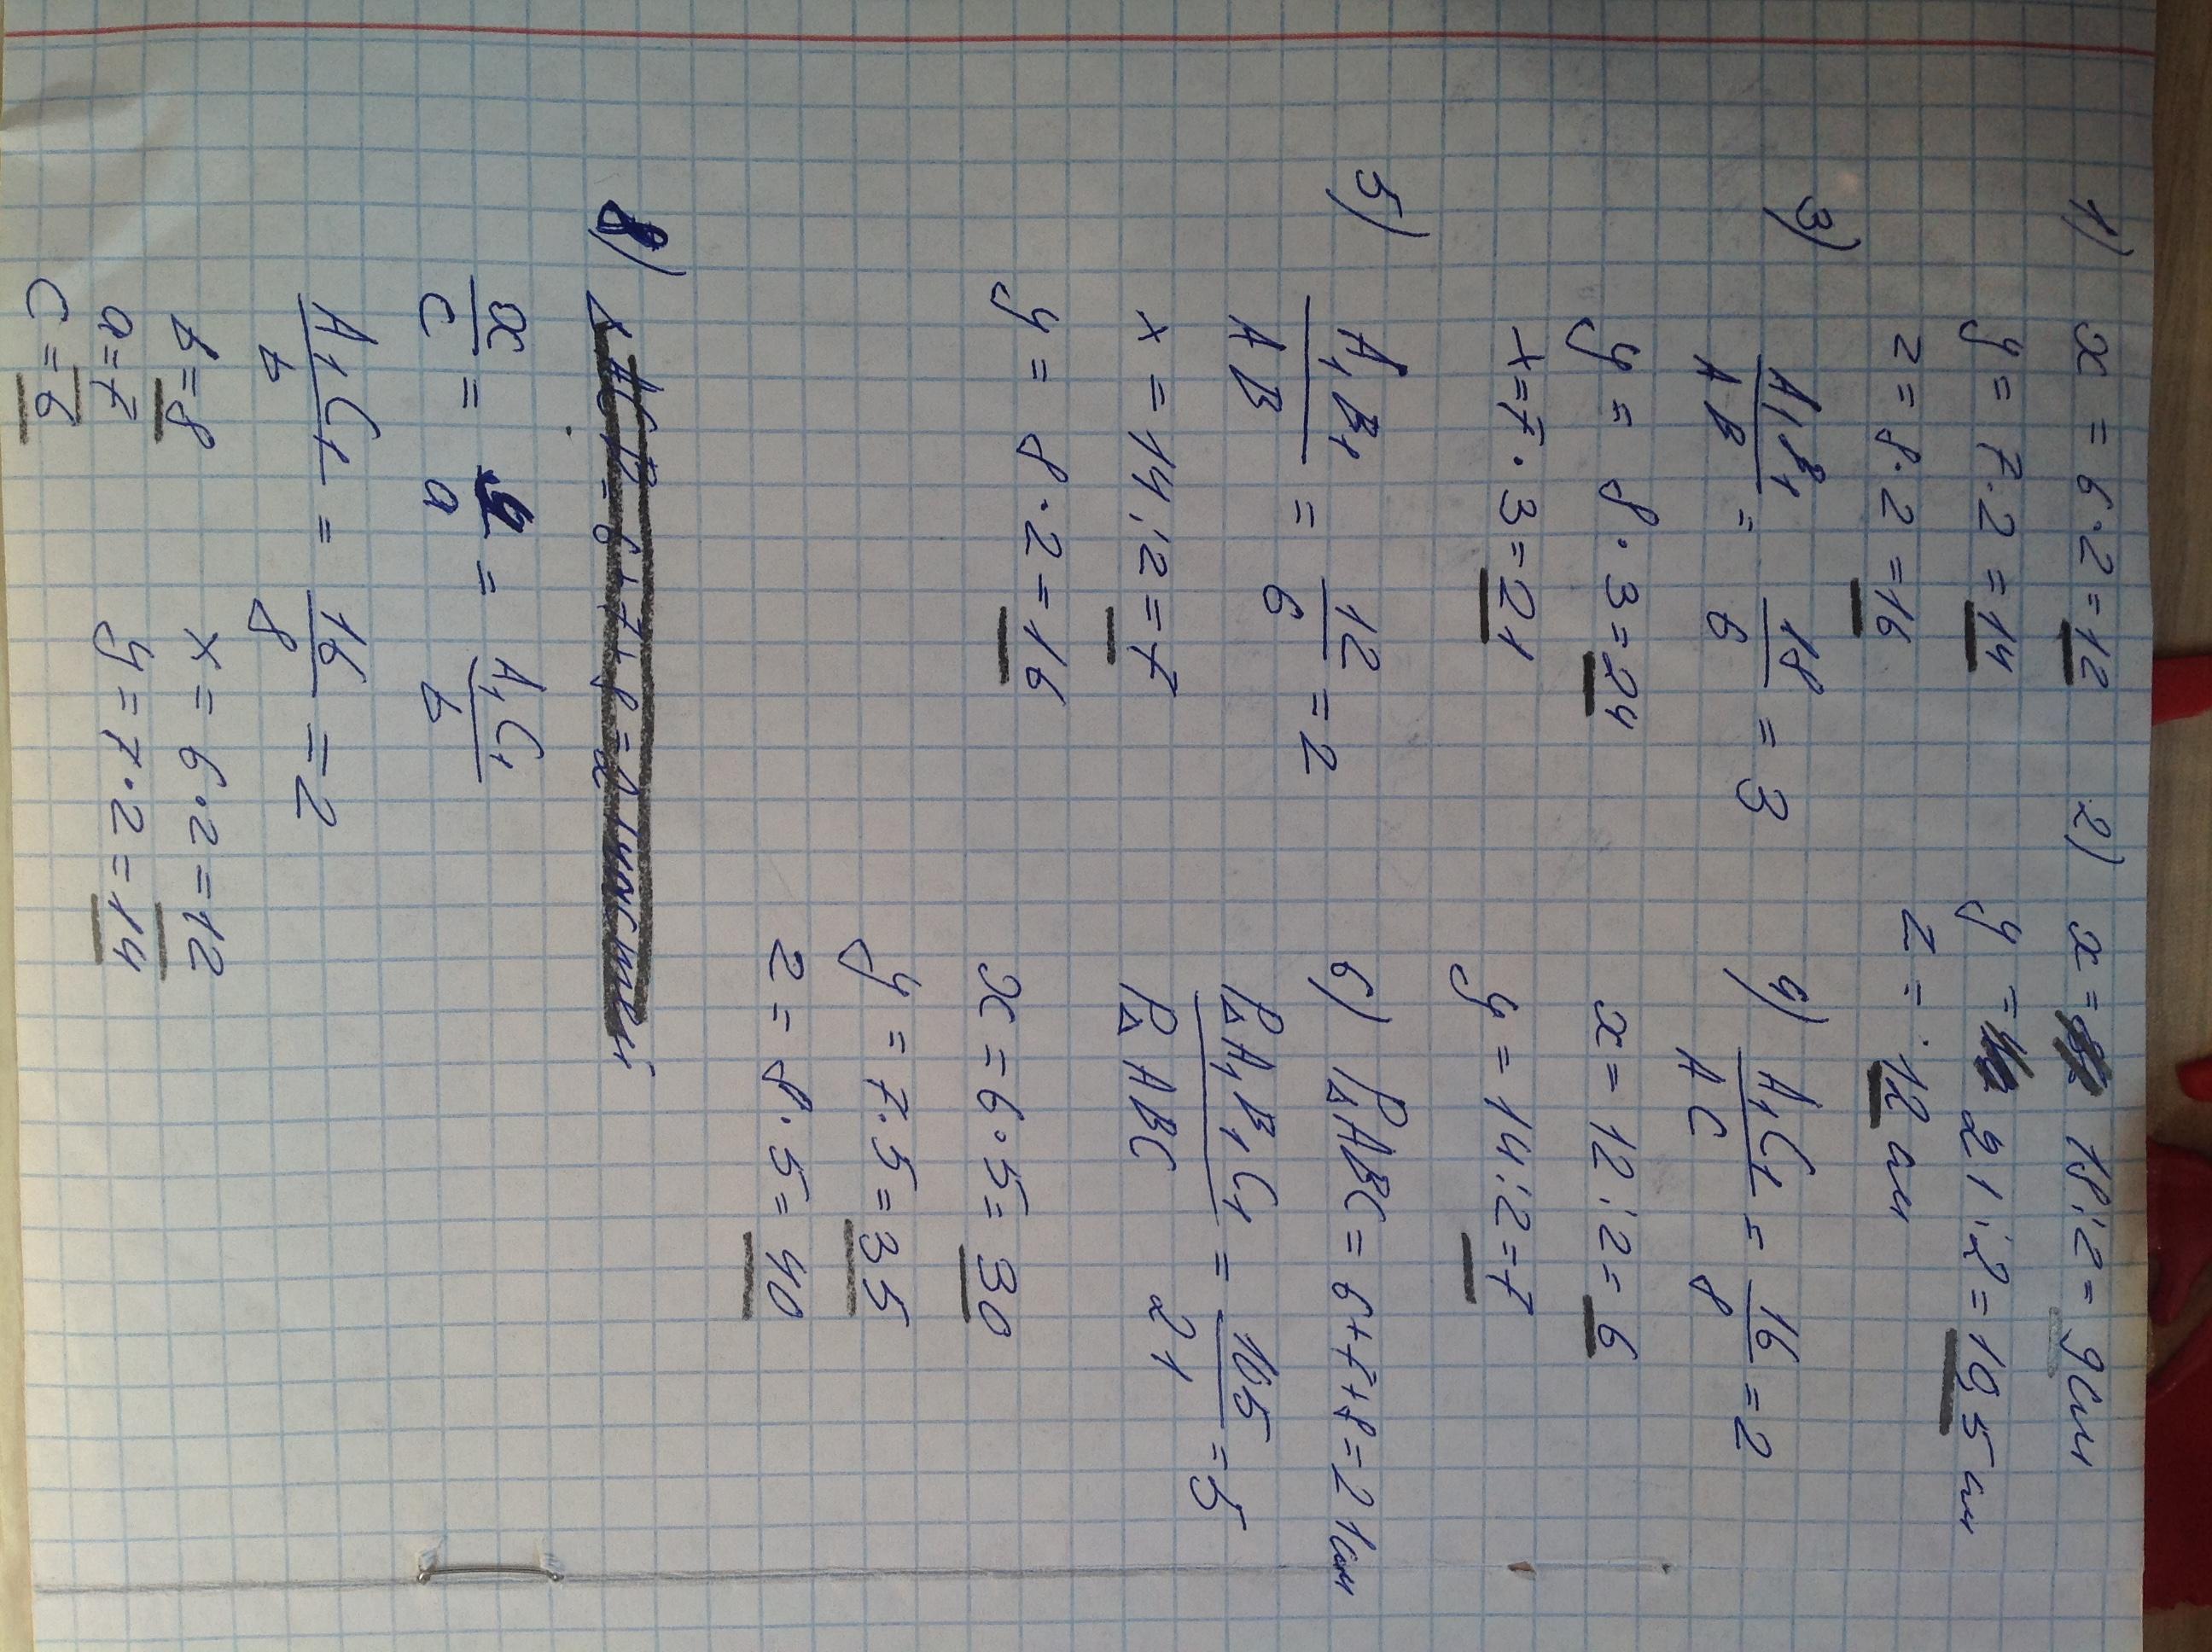 1) x = 6·2=12
y = 7·2 = 14
z = 8·2 = 16
2) x = 18:2 = 9 см
y = 21:2=10,5 см
z = 12 см
3) A₁B₁/AB = 18/6 = 3
y = 8·3=24
x=7·3=21
4) A₁C₁/AC = 16/8 = 2
x = 12:2=6
y = 14:2=7
5) A₁B₁/AB = 12/6 = 2
x = 14:2=7
y = 8·2=16
6) P△ABC = 6+7+8=21см
P△A₁B₁C₁/P△ABC = 105/21 = 5
x = 6·5=30
y = 7·5=35
z = 8·5=40
8)
x/c = y/a = A₁C₁/b
A₁C₁/b = 16/8 = 2
b=8
x=6·2=12
a=7
y=7·2=14
c=6